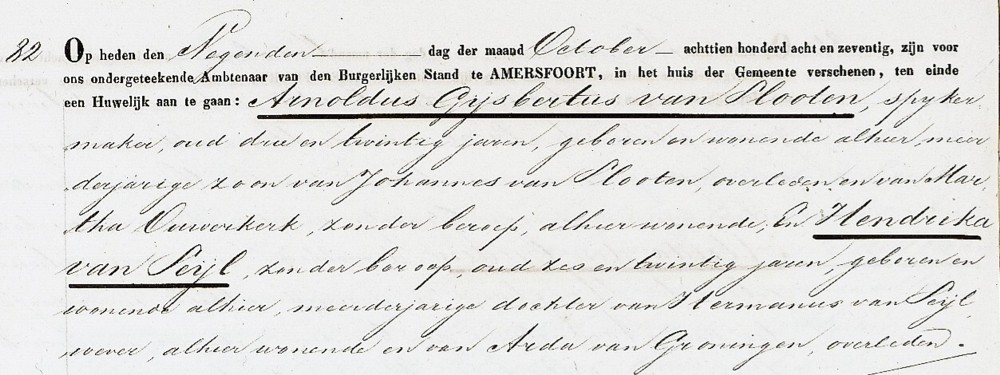 82 Op heden den Negenden dag der maand October achttien honderd acht en zeventig, zijn voor
ons ondergeteekende Ambtenaar van den Burgerlijken Stand te AMERSFOORT, in het huis der Gemeente verschenen, ten einde
een Huwelijk aan te gaan: Arnoldus Gijsbertus van Slooten, spyker
maker, oud drie en twintig jaren, geboren en wonende alhier, meer
derjarige zoon van Johannes van Slooten, overleden en van Mar-
tha Ouwerkerk, zonder beroep, alhier wonende; En Hendrika
van Seijl, zonder beroep, oud zes en twintig jaren, geboren en
wonende alhier, meerderjarige dochter van Hermanus van Seijl,
wever, alhier wonende en van Arda van Groningen, overleden.